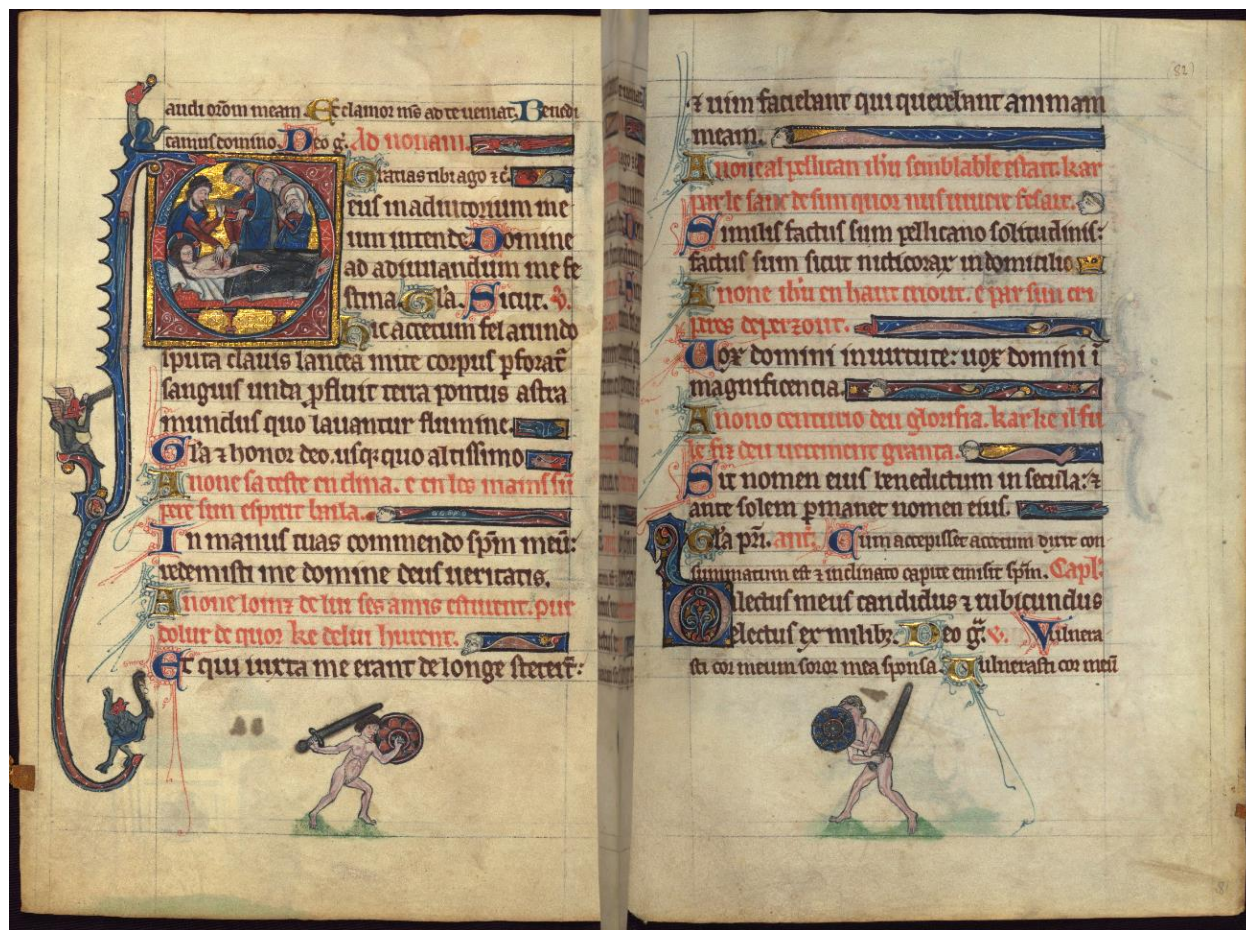 audi orōm meam. Et clamor mś ad te ueniat. Benedi
camus domino. Deo gͣ. Ad nonam.
Gratias tibi ago ⁊ c̄.
eus in adiutorium me
um intende. Domine
ad adiuuandum me fe
stina. Gl'a. Sicut. v.
Hic acetum fel arundo
sputa clauis lancea mite corpus ꝑforat̄
sanguis unda ꝓfluit terra pontus astra
mundus quo lauantur flumine.
Gl'a ⁊ honor deo. usqꝫ quo altissimo
A none sa teste enclina. e en les mains sun
pere sun espirit baila.
In manus tuas commendo sp̄m meū:
redemisti me domine deus ueritatis.
A none loinz de lui ses amis esturent. pur
dolur de quor ke de lui hurent.
Et qui iuxta me erant de longe steterūt:
(82)
⁊ uim faciebant qui querebant animam
meam.
A none al pellican ih'u semblable estait. kar
par le sanc de sun quor nus uiuere fesait.
Similis factus sum pellicano solitudinis:
factus sum sicut nicticorax in domicilio
A none ih'u en haut criout. e par sun cri
peres deperzout.
Uox domini in uirtute: uox domini ī
magnificencia.
A nono centurio deu glorifia. kar ke il fu
le fiz deu uerement granta.
Sit nomen eius benedictum in secula: ⁊
ante solem ꝑmanet nomen eius.
Gl'a pr̄i. ant'. Cum accepisset acetum dixit con
summatum est ⁊ inclinato capite emisit sp̄m. Capl'.
Dilectus meus candidus ⁊ rubicundus
electus ex milibꝫ. Deo gͣ. v. Vulnera
sti cor meum soror mea sponsa. Uulnerasti cor meū
81